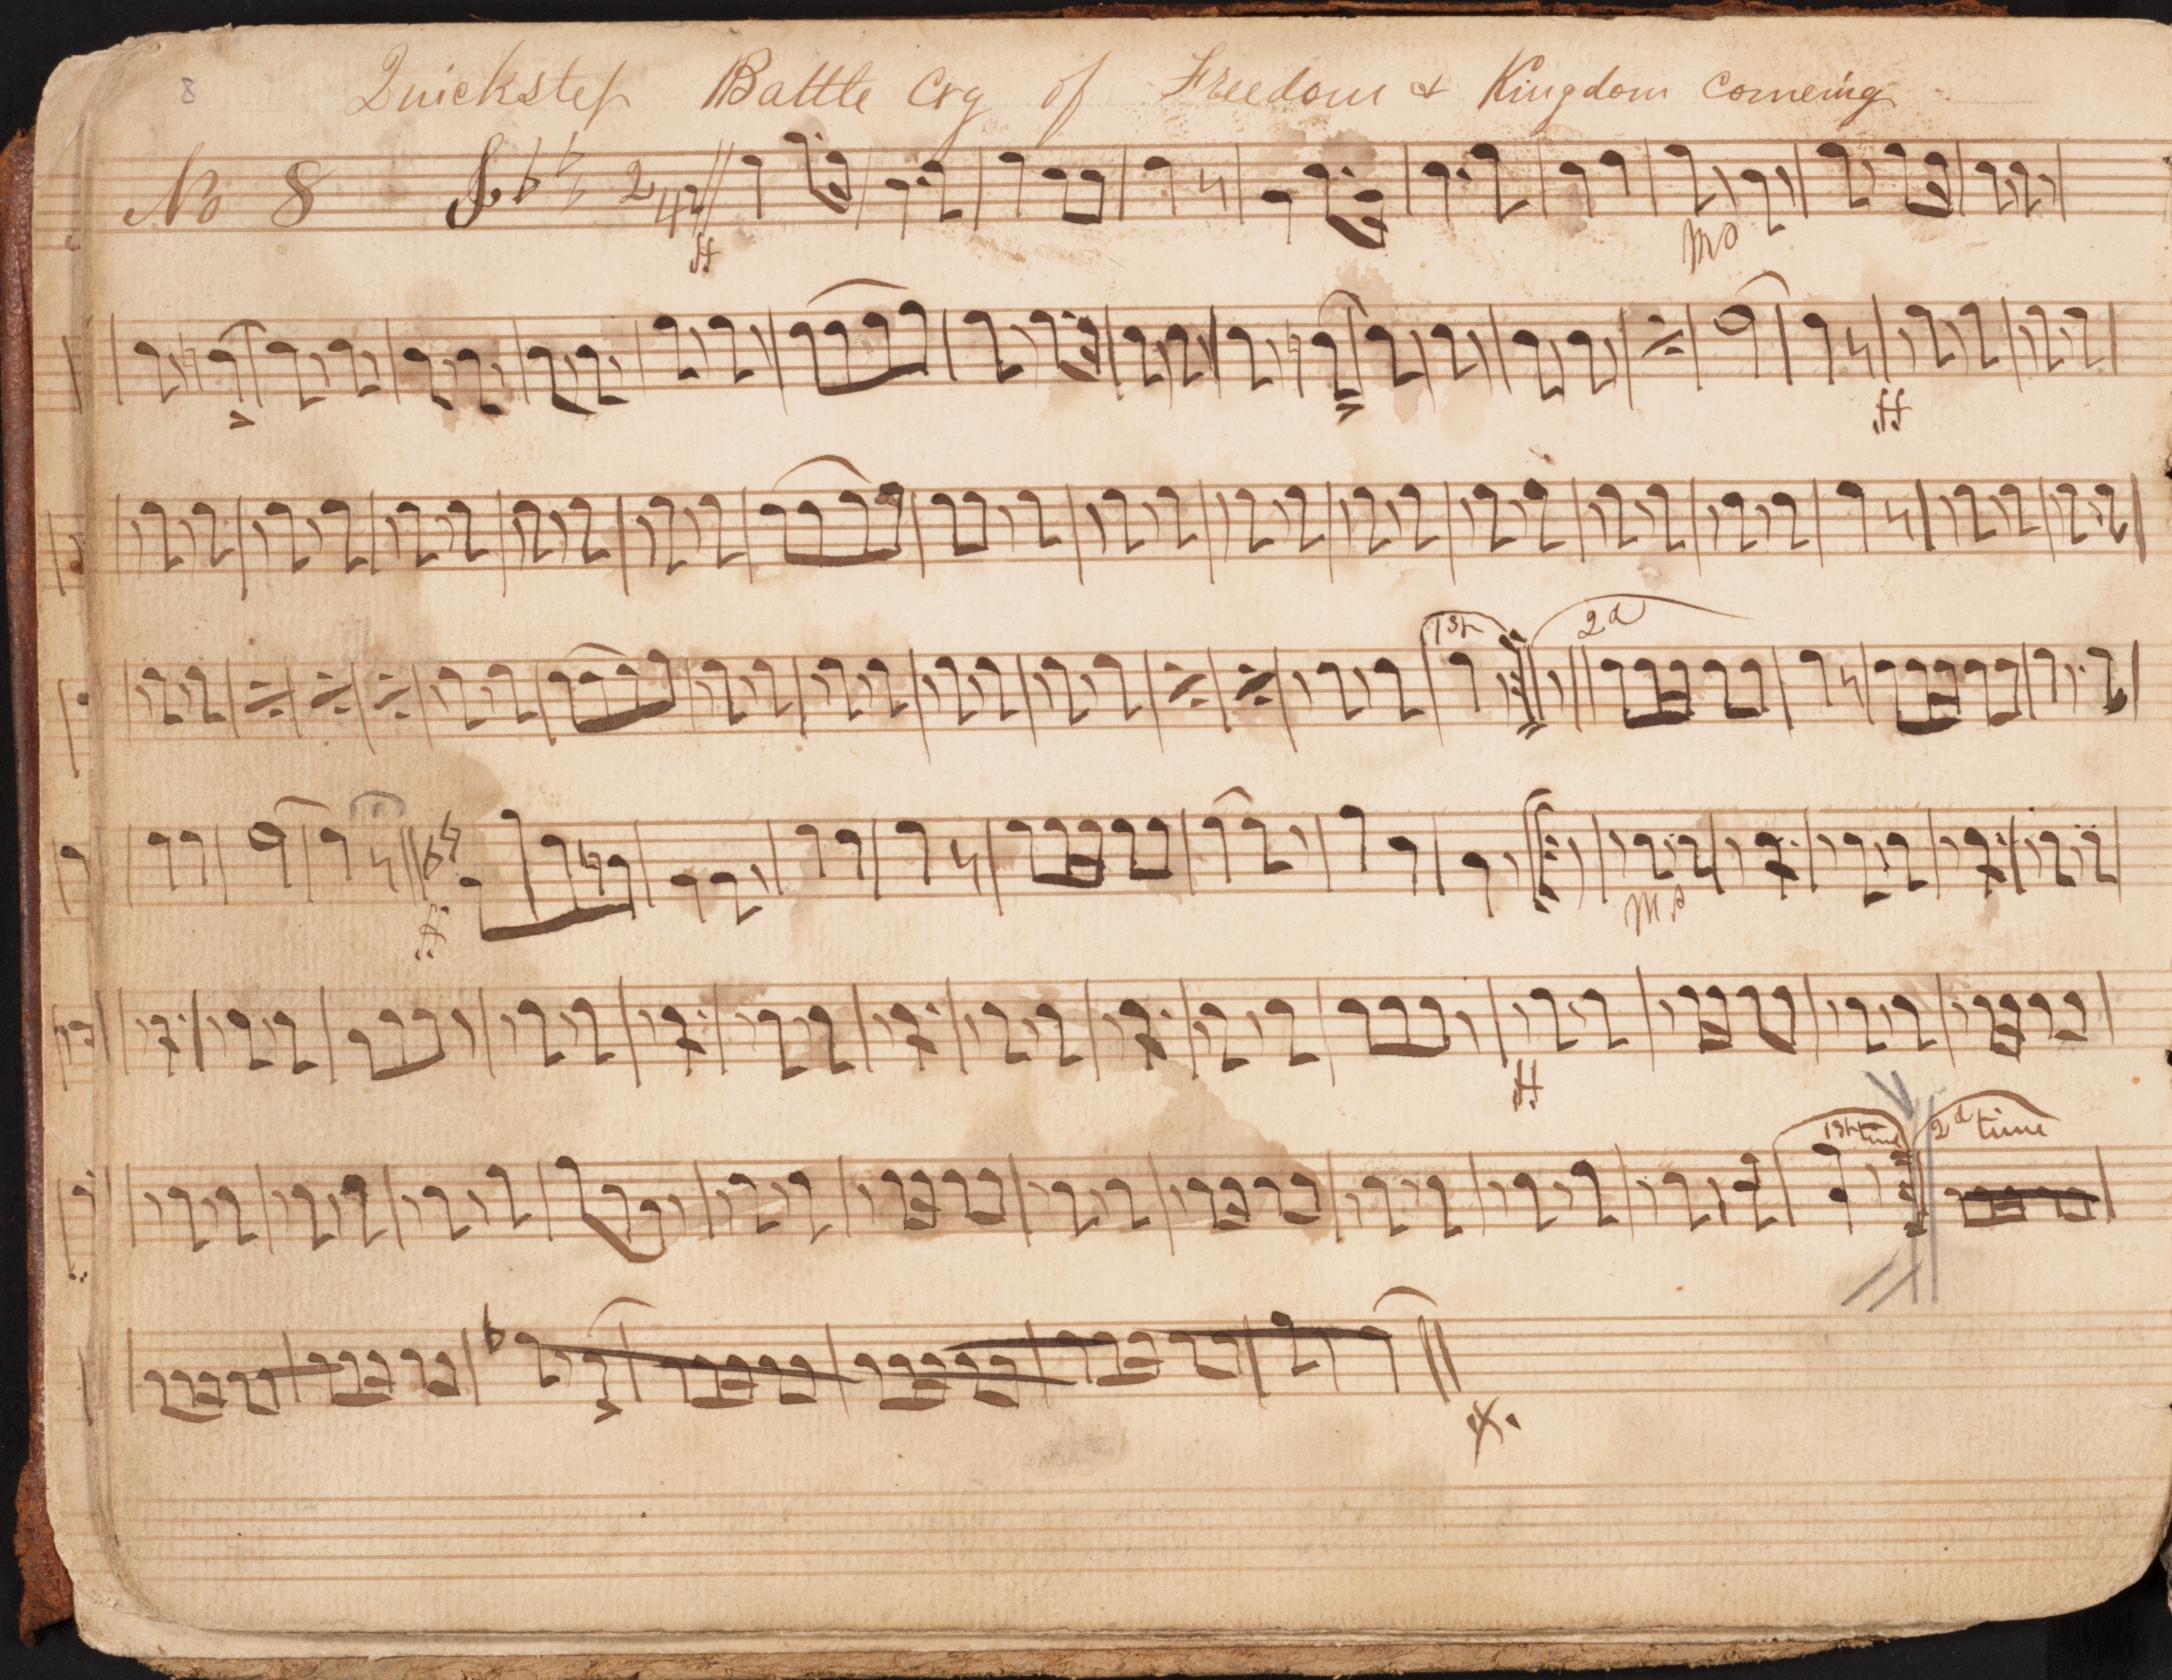 8
Quickstep Battle Cry of Freedom & Kingdom comeing
No 8 2 4
ff
mo
ff
1st 2d
ff mp
ff
1st time 2d time